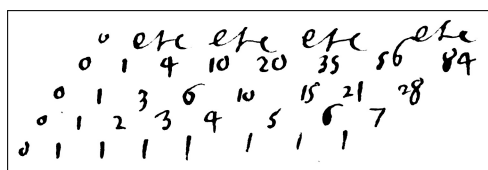 0 etc etc etc etc
0 1 4 10 20 35 56 84
0 1 3 6 10 15 21 28
0 1 2 3 4 5 6 7
0 1 1 1 1 1 1 1